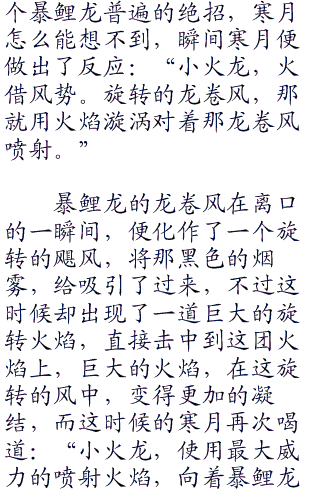 个暴鲤龙普遍的绝招，寒月
怎么能想不到，瞬间寒月便
做出了反应：“小火龙，火
借风势。旋转的龙卷风，那
就用火焰漩涡对着那龙卷风
喷射。”
暴鲤龙的龙卷风在离口
的一瞬间，便化作了一个旋
转的飓风，将那黑色的烟
雾，给吸引了过来，不过这
时候却出现了一道巨大的旋
转火焰，直接击中到这团火
焰上，巨大的火焰，在这旋
转的风中，变得更加的凝
结，而这时候的寒月再次喝
道：“小火龙，使用最大威
力的喷射火焰，向着暴鲤龙